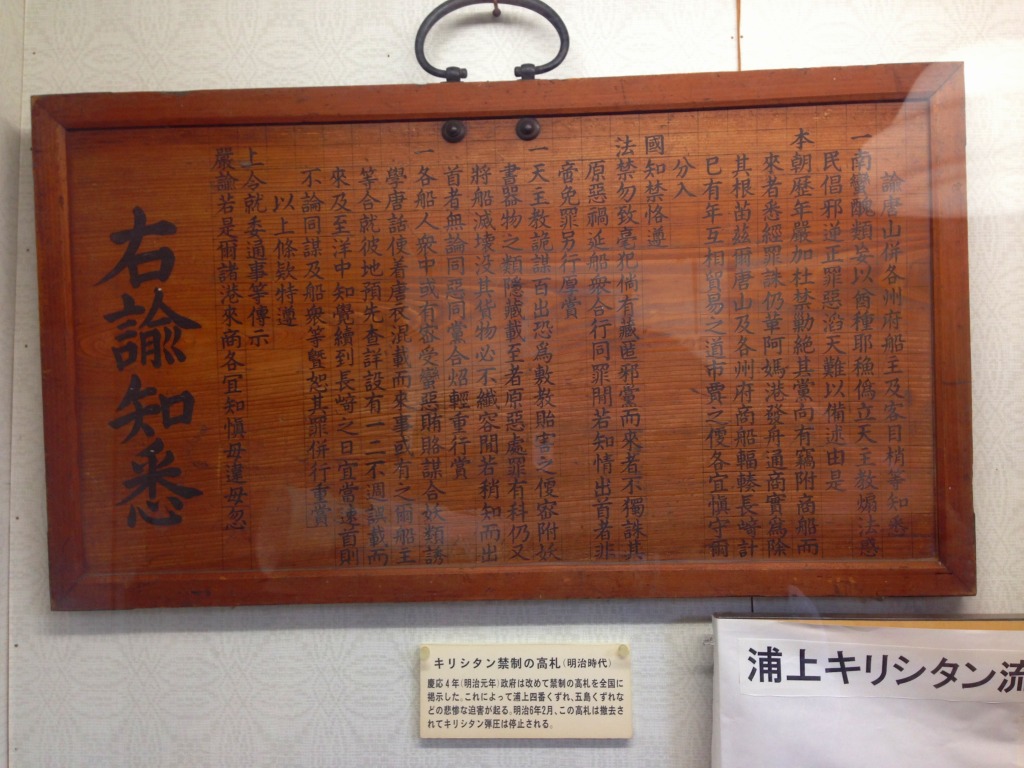 諭唐山併各州府船主及客目梢等知悉
一南蠻醜類妄以酋種耶穌偽立天主教煽法惑
民倡邪逆正罪惡滔天難以備述由是
本朝歷年嚴加杜禁勦絕其黨向有竊附商船而
來者悉經罪誅仍革阿媽港發舟通商實為除
其根苗茲爾唐山及各州府商船輻輳長崎計
已有年互相貿易之道市賈之便各宜慎守爾
分入
國知禁恪遵
法禁勿致毫犯倘有藏匿邪黨而來者不獨誅其
原惡禍延船眾合行同罪開若知情出首者非
啻免罪另行厚賞
一天主教詭謀百出恐為教貽害之便寄附妖
書器物之類隱藏載至者原惡處罪有科仍又
將船滅壊没其貨物必不纖容開若稍知而出
首者無論同惡同黨合炤輕重行賞
一各船人衆中或有容受蠻惡賄賂謀合妖類誘
學唐話使着唐衣混載而來事或有之爾船主
等合就彼地預先查詳設有一二不週誤載而
來及至洋中知覺續到長崎之日宜當速首則
不論同謀及船衆等曁恕其罪併行重賞
以上條款特遵
上令就委通事等傳示
嚴諭若是爾諸港來商各宜知慎毋違毋忽
右諭知悉
キリシタン禁制の高札(明治時代)
慶応4年(明治元年)政府は改めて禁制の高札を全国に
掲示した。これによって浦上四番くずれ、五島くずれな
どの悲惨な迫害が起る。明治6年2月、この高札は撤去さ
れてキリシタン弾圧は停止される。
浦上キリシタン流